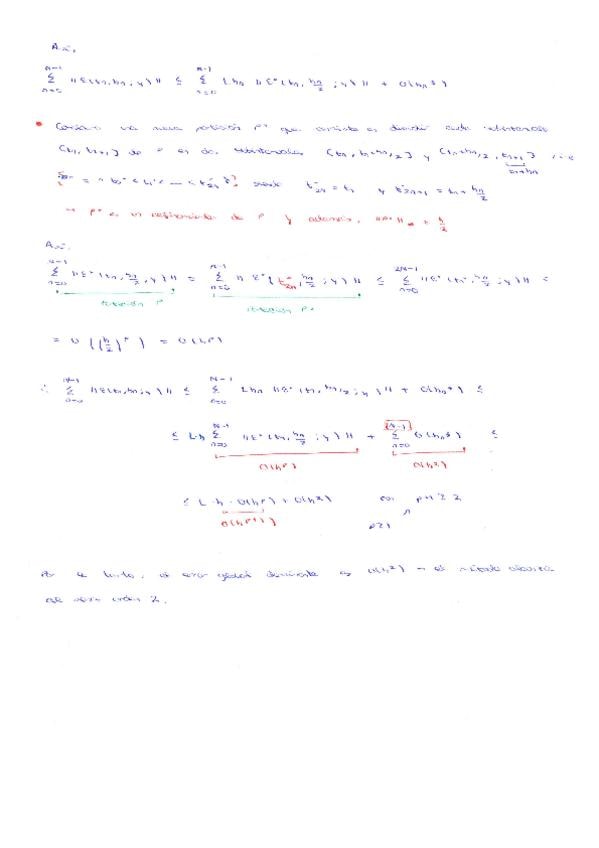 Así,
∑_{n=0}^{N-1} ||ε(tn, hn; y)|| ≤ ∑_{n=0}^{N-1} L hn ||ε*(tn, hn/2; y)|| + O(hn³)
• una nueva partición P* que consiste en dividir cada subintervalo
[tn, tn+1] de P en dos subintervalos [tn, tn+hn/2] y [tn+hn/2, tn+1] i.e
tn+hn
t*2n = tn y t*2n+1 = tn + hn/2
→ P* es un refinamiento de P y además, = h/2
Así:
∑_{n=0}^{N-1} ||ε*(tn, hn/2; y)|| = ∑_{n=0}^{N-1} ||ε*(t*2n, hn/2; y)|| ≤ ∑_{n=0}^{2N-1} ||ε*(t*n, hn/2; y)|| =
partición P partición P*
= O((h/2)^p) = O(h^p)
∴ ∑_{n=0}^{N-1} ||ε(tn, hn; y)|| ≤ ∑_{n=0}^{N-1} L hn ||ε*(tn, hn/2; y)|| + O(hn³) ≤
≤ L h ∑_{n=0}^{N-1} ||ε*(tn, hn/2; y)|| + ∑_{n=0}^{N-1} O(hn³) ≤
O(h^p) O(h²)
≤ L · h · O(h^p) + O(h²) con p+1 ≥ 2
O(h^{p+1}) p ≥ 1
Por lo tanto, el error global dominante es O(h²) → el método
orden 2.